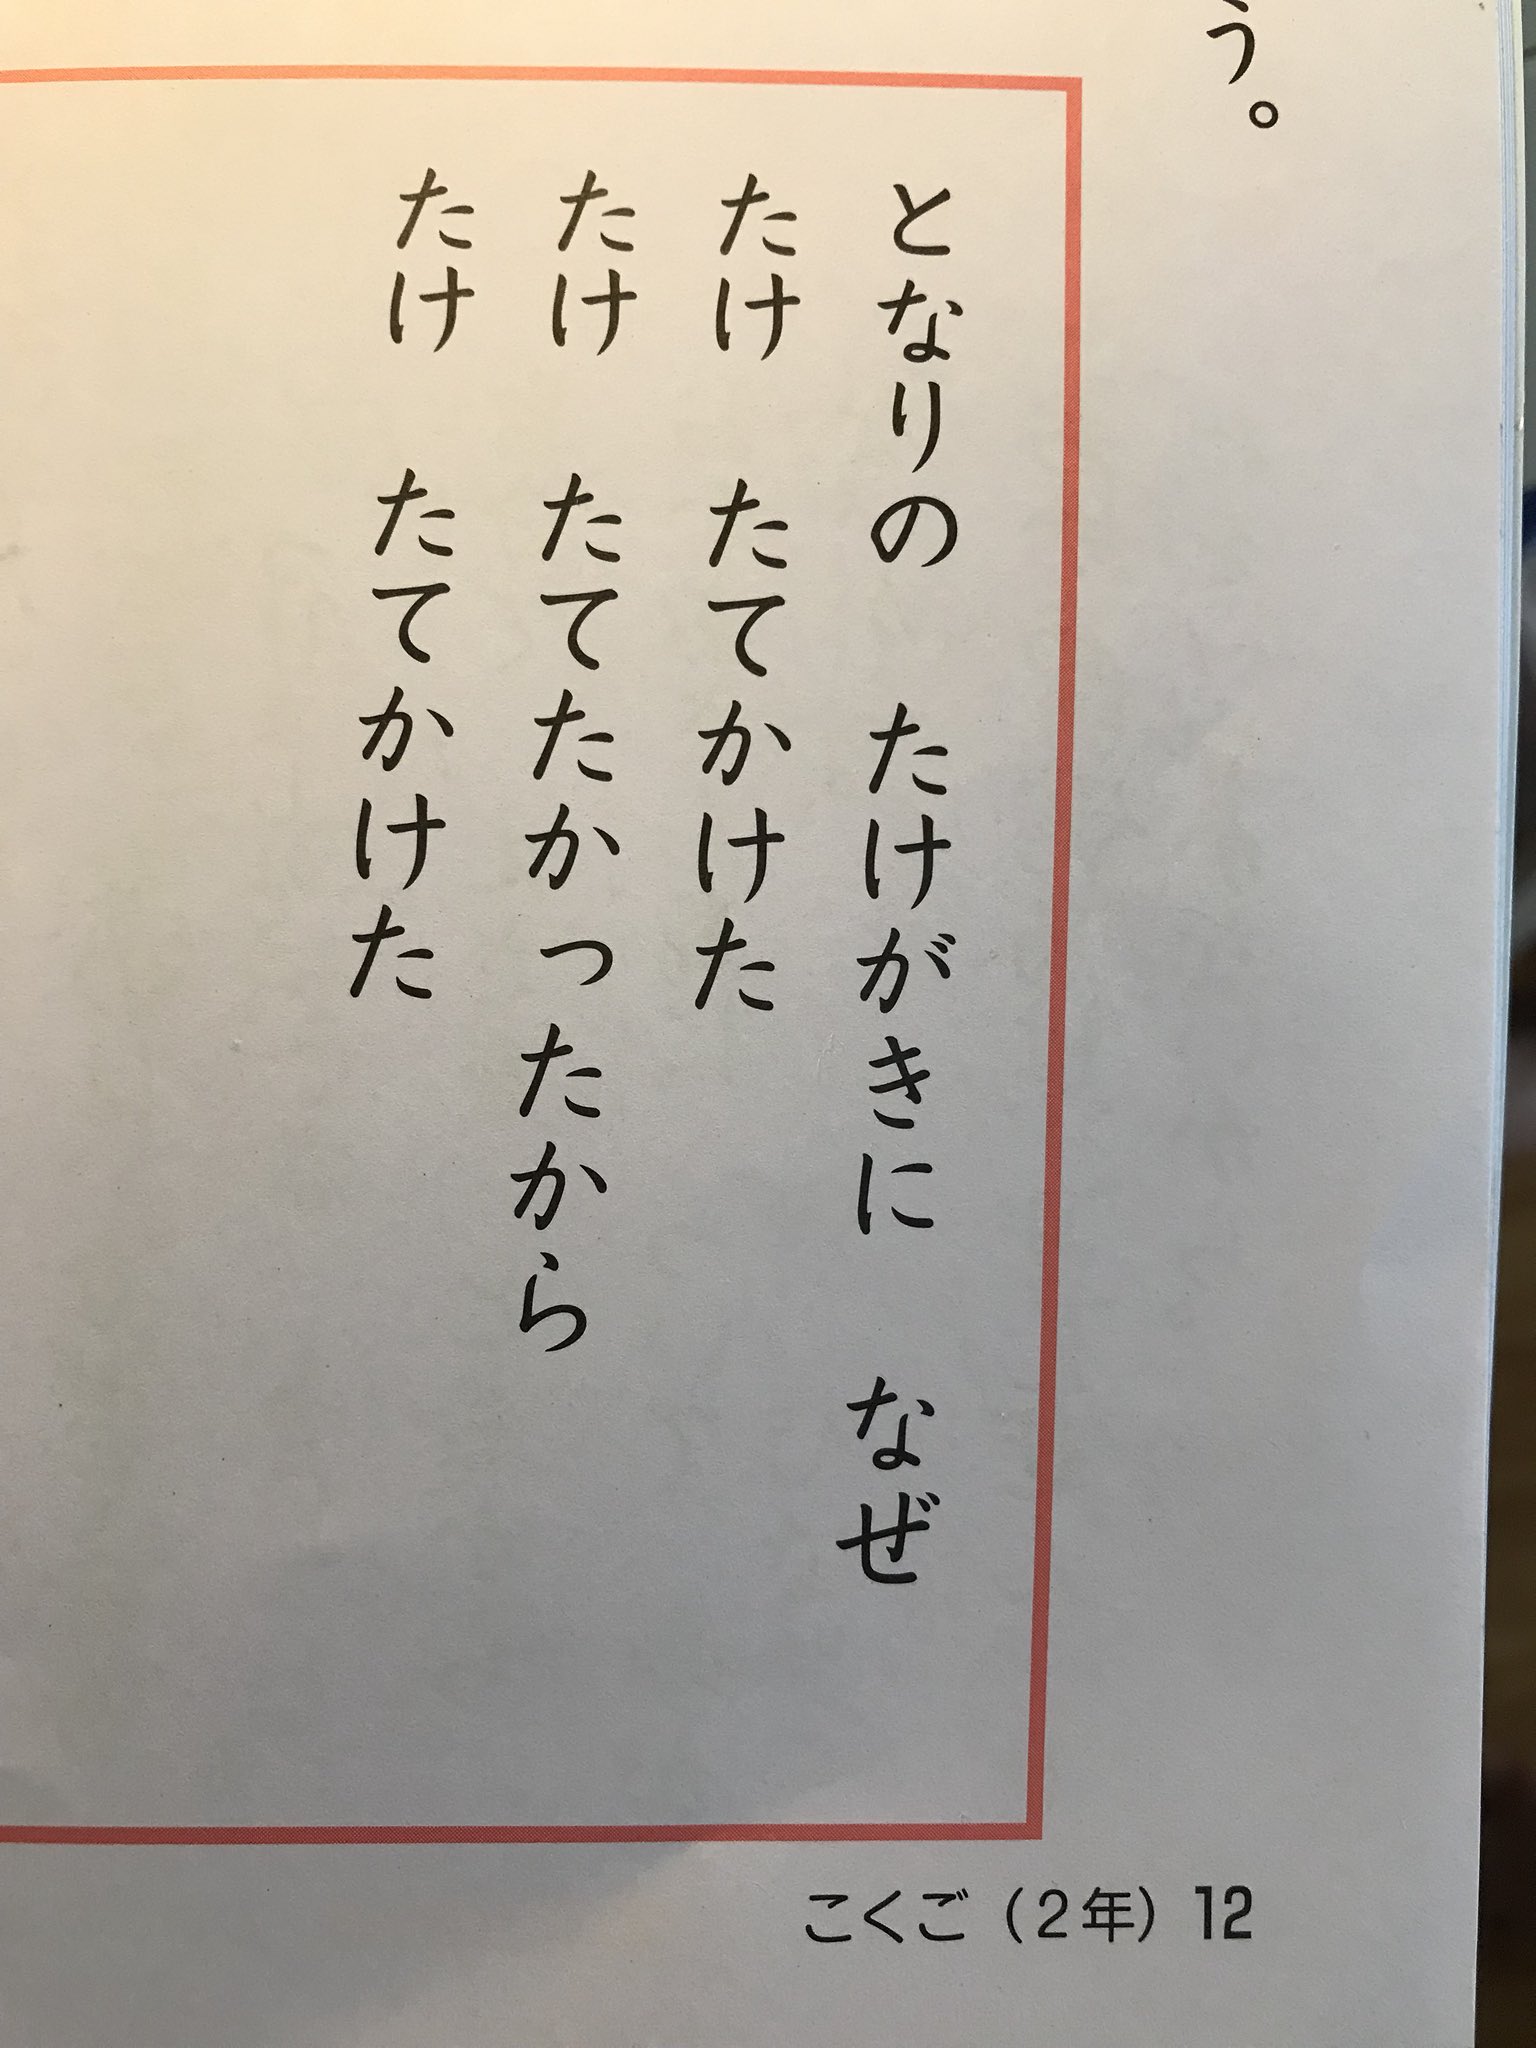 う。
となりの　たけがきに　なぜ
たけ　たてかけた
たけ　たてたかったから
たけ　たてかけた
こくご（２年）12